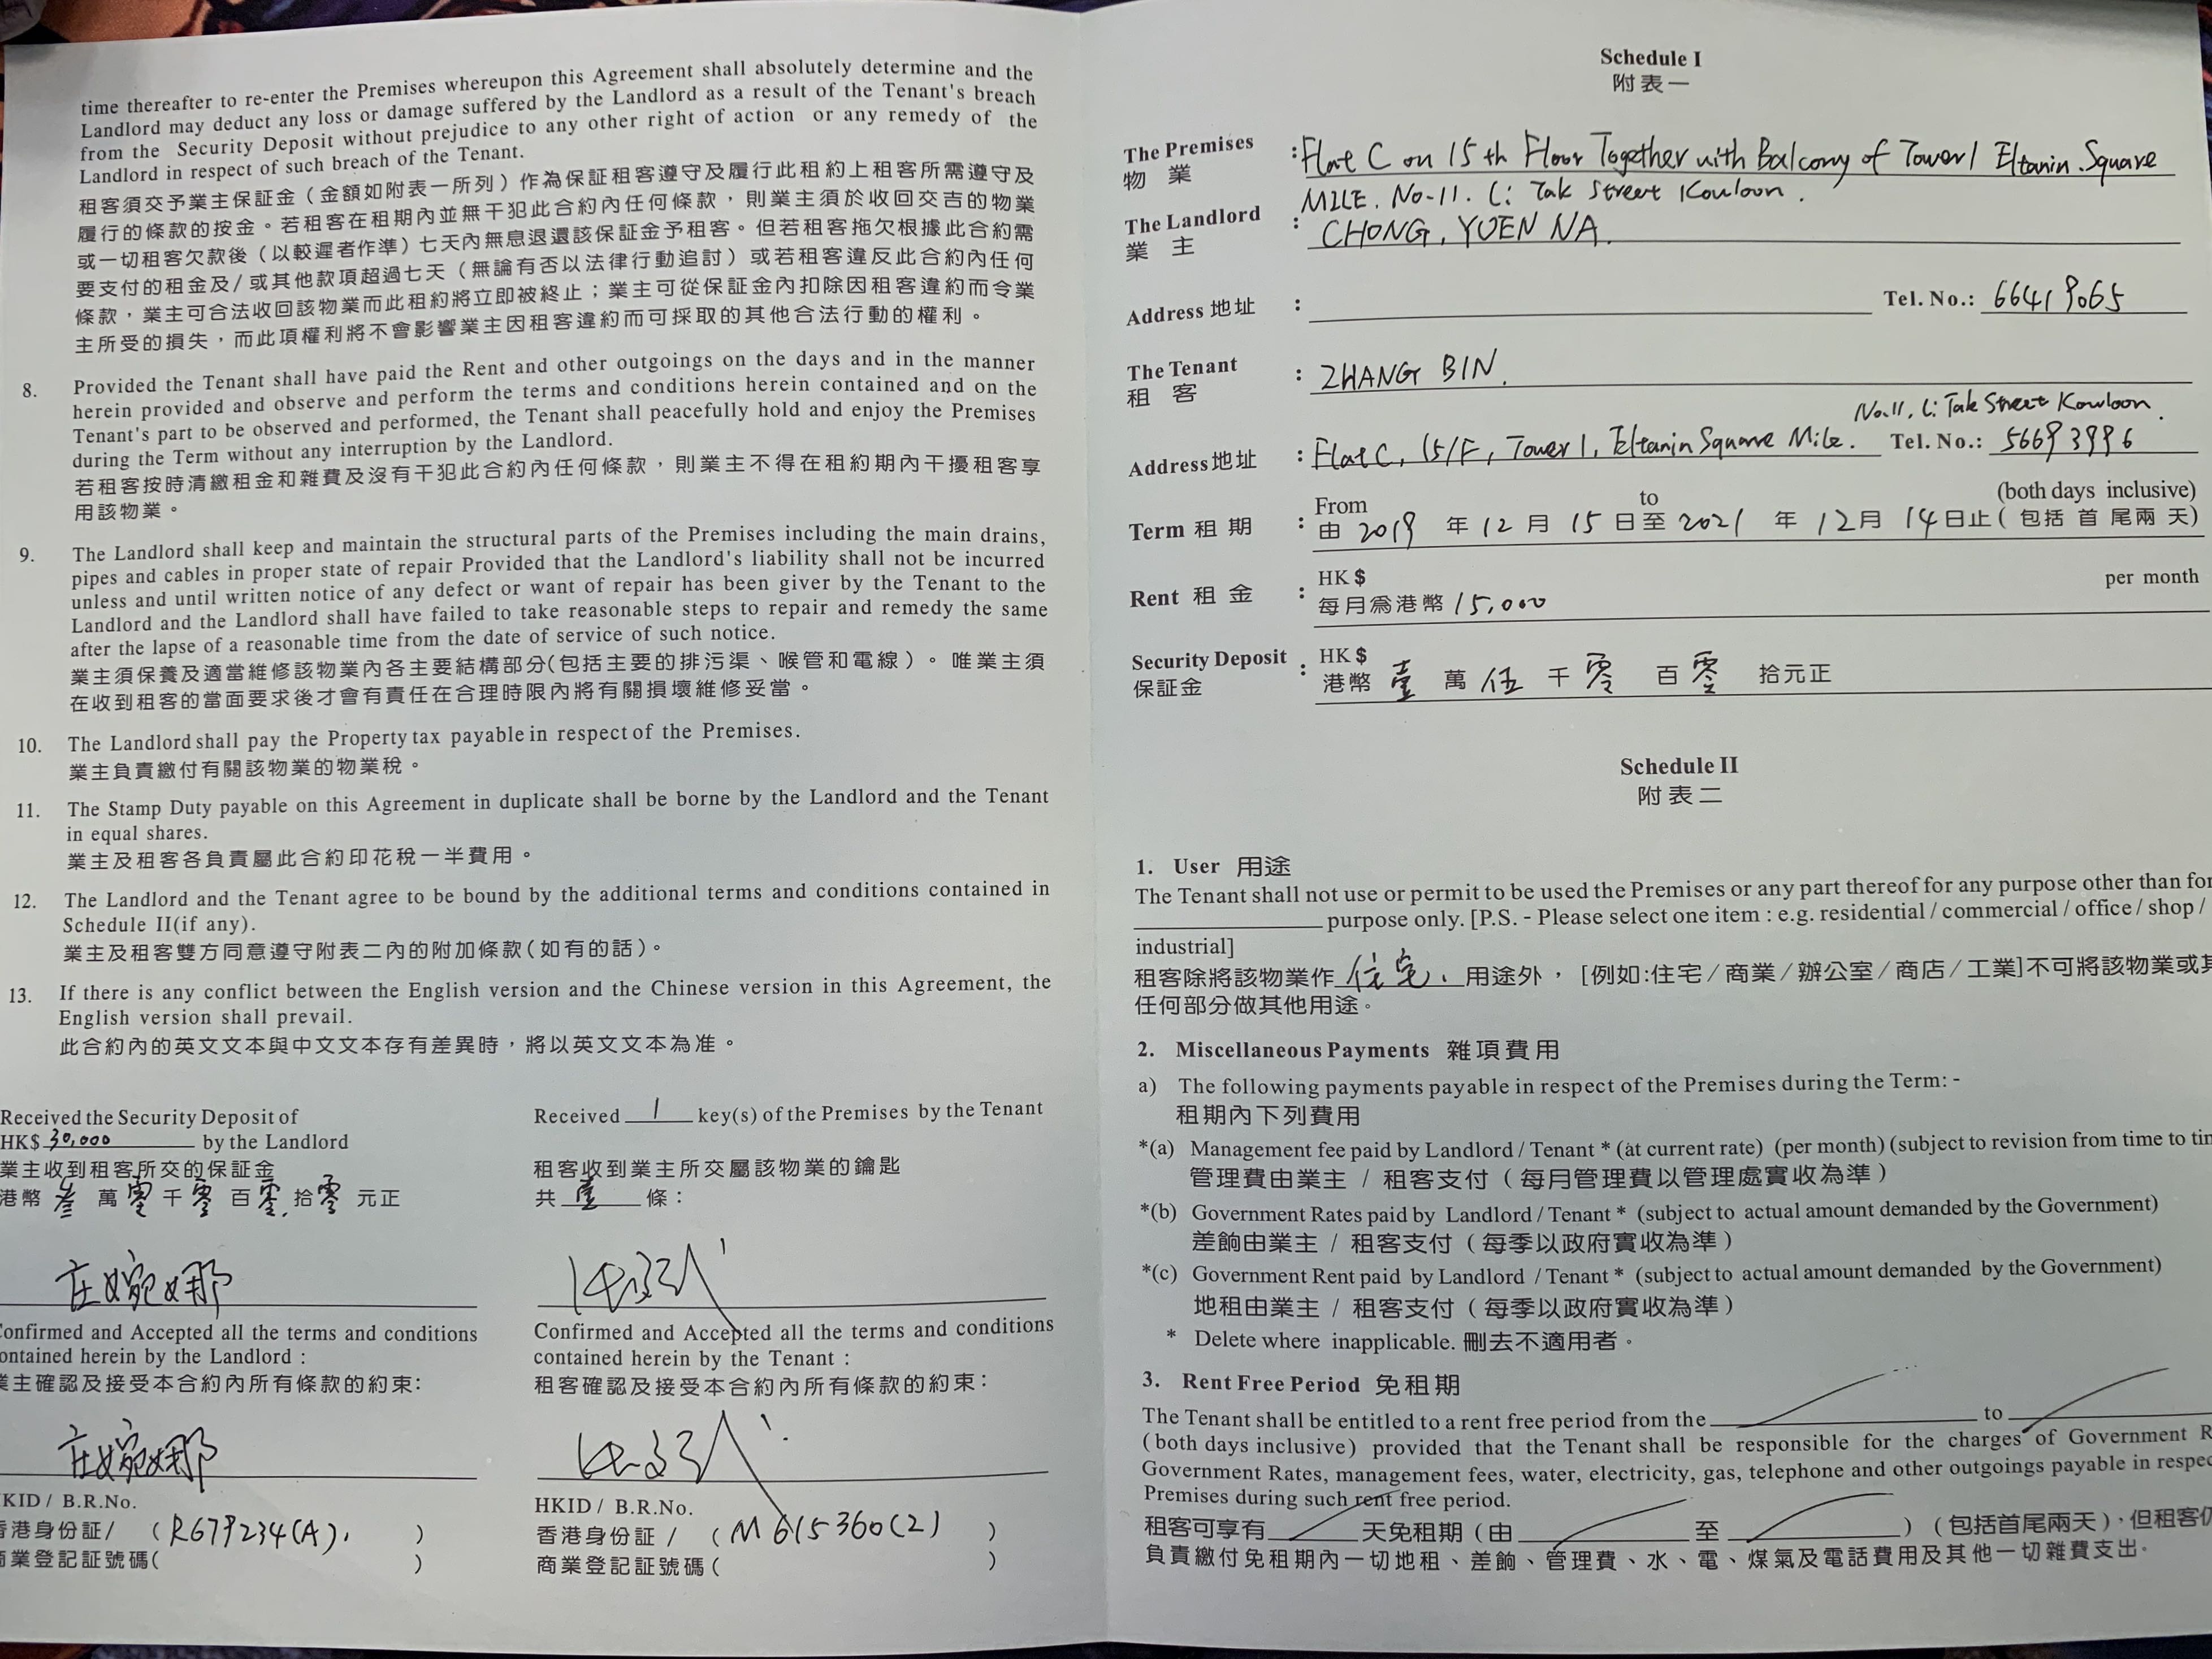 time thereafter to re-enter the Premises whereupon this Agreement shall absolutely determine and the
Landlord may deduct any loss or damage suffered by the Landlord as a result of the Tenant's breach
from the Security Deposit without prejudice to any other right of action or any remedy of the
Landlord in respect of such breach of the Tenant.
租客須交予業主保証金（金額如附表一所列）作為保証租客遵守及履行此租約上租客所需遵守及
履行的條款的按金。若租客在租期內並無干犯此合約內任何條款，則業主須於收回交吉的物業
或一切租客欠款後（以較遲者作準）七天內無息退還該保証金予租客。但若租客拖欠根據此合約需
要支付的租金及/或其他款項超過七天（無論有否以法律行動追討）或若租客違反此合約內任何
條款，業主可合法收回該物業而此租約將立即被終止；業主可從保証金內扣除因租客違約而令業
主所受的損失，而此項權利將不會影響業主因租客違約而可採取的其他合法行動的權利。
8. Provided the Tenant shall have paid the Rent and other outgoings on the days and in the manner
herein provided and observe and perform the terms and conditions herein contained and on the
Tenant's part to be observed and performed, the Tenant shall peacefully hold and enjoy the Premises
during the Term without any interruption by the Landlord.
若租客按時清繳租金和雜費及沒有干犯此合約內任何條款，則業主不得在租約期內干擾租客享
用該物業。
9. The Landlord shall keep and maintain the structural parts of the Premises including the main drains,
pipes and cables in proper state of repair Provided that the Landlord's liability shall not be incurred
unless and until written notice of any defect or want of repair has been giver by the Tenant to the
Landlord and the Landlord shall have failed to take reasonable steps to repair and remedy the same
after the lapse of a reasonable time from the date of service of such notice.
業主須保養及適當維修該物業內各主要結構部分(包括主要的排污渠、喉管和電線）。唯業主須
在收到租客的當面要求後才會有責任在合理時限內將有關損壞維修妥當。
10. The Landlord shall pay the Property tax payable in respect of the Premises.
業主負責繳付有關該物業的物業稅。
11. The Stamp Duty payable on this Agreement in duplicate shall be borne by the Landlord and the Tenant
in equal shares.
業主及租客各負責屬此合約印花稅一半費用。
12. The Landlord and the Tenant agree to be bound by the additional terms and conditions contained in
Schedule II(if any).
業主及租客雙方同意遵守附表二內的附加條款(如有的話)。
13. If there is any conflict between the English version and the Chinese version in this Agreement, the
English version shall prevail.
此合約內的英文文本與中文文本存有差異時，將以英文文本為准。
Received the Security Deposit of
HK$ 30,000 by the Landlord
業主收到租客所交的保証金
港幣 叁 萬 零 千 零 百 零 拾 零 元正
庄婉娜
onfirmed and Accepted all the terms and conditions
ontained herein by the Landlord :
業主確認及接受本合約內所有條款的約束:
庄婉娜
KID / B.R.No.
香港身份証/ (R679234(A). )
商業登記証號碼( )
Received 1 key(s) of the Premises by the Tenant
租客收到業主所交屬該物業的鑰匙
共 壹 條：
Confirmed and Accepted all the terms and conditions
contained herein by the Tenant :
租客確認及接受本合約內所有條款的約束：
HKID / B.R.No.
香港身份証 / (M615360(2) )
商業登記証號碼( )
Schedule I
附表一
The Premises : Flat C on 15th Floor Together with Balcony of Tower 1 Eltanin. Square
物 業 MILE. No-11. Li Tak Street Kowloon.
The Landlord : CHONG, YUEN NA.
業 主
Address 地址 : Tel. No.: 66419065
The Tenant : ZHANG BIN.
租 客
No.11, Li Tak Street Kowloon.
Address 地址 : Flat C, 15/F, Tower 1, Eltanin Square Mile. Tel. No.: 56693996
From to (both days inclusive)
Term 租期 : 由 2019 年 12 月 15 日至 2021 年 12 月 14 日止( 包括 首 尾兩 天)
HK $ per month
Rent 租金 : 每月為港幣 15,000
Security Deposit : HK $
保証金 港幣 壹 萬 伍 千 零 百 零 拾元正
Schedule II
附表二
1. User 用途
The Tenant shall not use or permit to be used the Premises or any part thereof for any purpose other than for
purpose only. [P.S. - Please select one item : e.g. residential / commercial / office / shop /
industrial]
租客除將該物業作 住宅. 用途外，[例如:住宅/商業/辦公室/商店/工業]不可將該物業或其
任何部分做其他用途。
2. Miscellaneous Payments 雜項費用
a) The following payments payable in respect of the Premises during the Term: -
租期內下列費用
*(a) Management fee paid by Landlord / Tenant * (at current rate) (per month) (subject to revision from time to tim
管理費由業主 / 租客支付（每月管理費以管理處實收為準）
*(b) Government Rates paid by Landlord / Tenant * (subject to actual amount demanded by the Government)
差餉由業主 / 租客支付（每季以政府實收為準）
*(c) Government Rent paid by Landlord / Tenant * (subject to actual amount demanded by the Government)
地租由業主 / 租客支付（每季以政府實收為準）
* Delete where inapplicable. 刪去不適用者。
3. Rent Free Period 免租期
The Tenant shall be entitled to a rent free period from the to
(both days inclusive) provided that the Tenant shall be responsible for the charges of Government R
Government Rates, management fees, water, electricity, gas, telephone and other outgoings payable in respec
Premises during such rent free period.
租客可享有 天免租期（由 至 ）（包括首尾兩天），但租客仍
負責繳付免租期內一切地租、差餉、管理費、水、電、煤氣及電話費用及其他一切雜費支出。